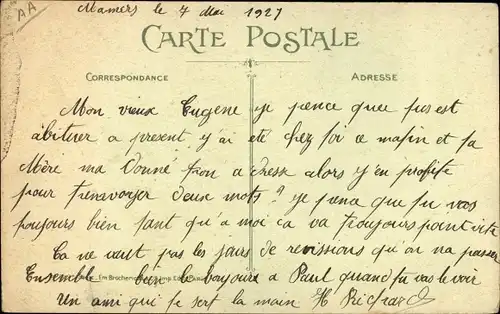 AA
Mamers le 7 Mai 1927
CARTE POSTALE
CORRESPONDANCE
ADRESSE
Mon vieux Eugene je pence que tus est
abituer a present, y'ai ete chez toi ce matin et ta
Mère ma donné ton a dresse alors y'en profite
pour t'envoyer deux mots? je pense que tu vas
toujours bien tant qu'a moi ca va toujours
Ca ne vaut pas les jours de revissions qu'on na passer
Ensemble bien le bonjour a Paul quand tu vas le voir
Un ami qui te sert la main H